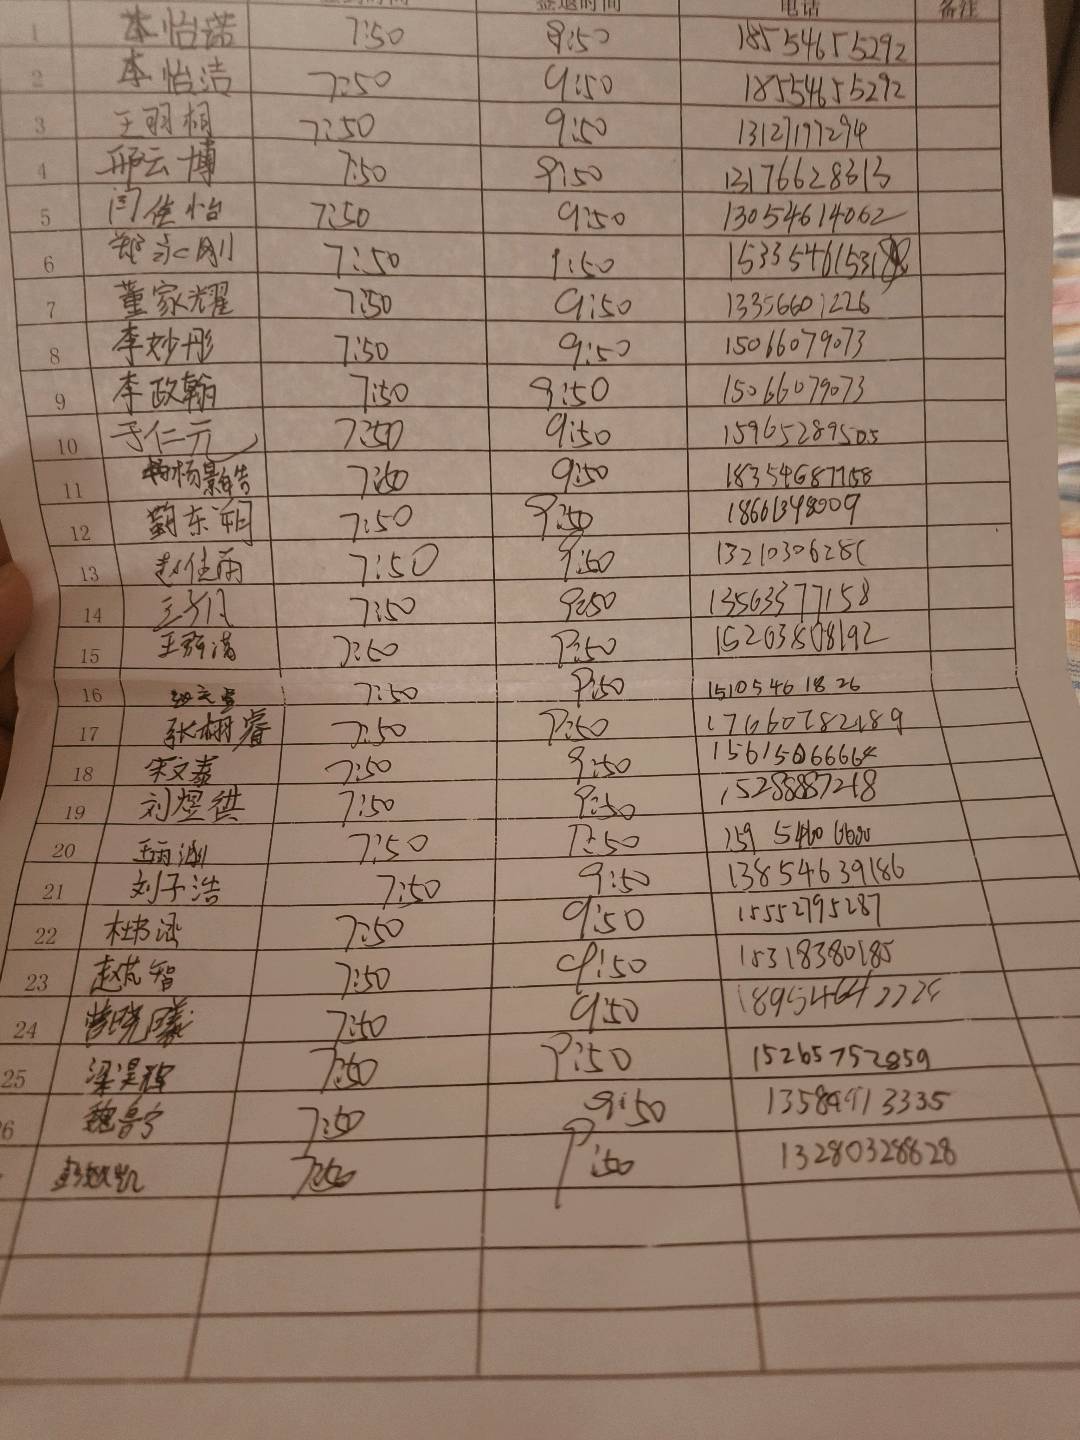 签退时间 电话 备注
1 李怡诺 7:50 9:50 18554655292
2 李怡洁 7:50 9:50 18554655292
3 王羽桐 7:50 9:50 13127197294
4 邢云博 7:50 9:50 13176628613
5 闫佳怡 7:50 9:50 13054614062
6 郑永刚 7:50 9:50
7 董家耀 7:50 9:50 13356601226
8 李妙彤 7:50 9:50 15066079073
9 李政翰 7:50 9:50 15066079073
10 于仁元 7:50 9:50 15965289505
11 7:50 9:50 18354687758
12 7:50 9:50 18661348009
13 赵佳雨 7:50 9:50
14 7:50 9:50 13563377158
15 7:50 9:50 15263808192
16 7:50 9:50 15105461826
17 张栩睿 7:50 9:50 17660782189
18 宋文泰 7:50 9:50 15615066664
19 刘煜祺 7:50 9:50 15288887218
20 7:50 9:50
21 刘子浩 7:50 9:50 13854639186
22 杜书涵 7:50 9:50 15552795287
23 7:50 9:50 15318380185
24 曹晓曦 7:50 9:50
25 梁昊辉 7:50 9:50 15265752859
魏鲁宁 7:50 9:50
7:50 9:50 13280328828